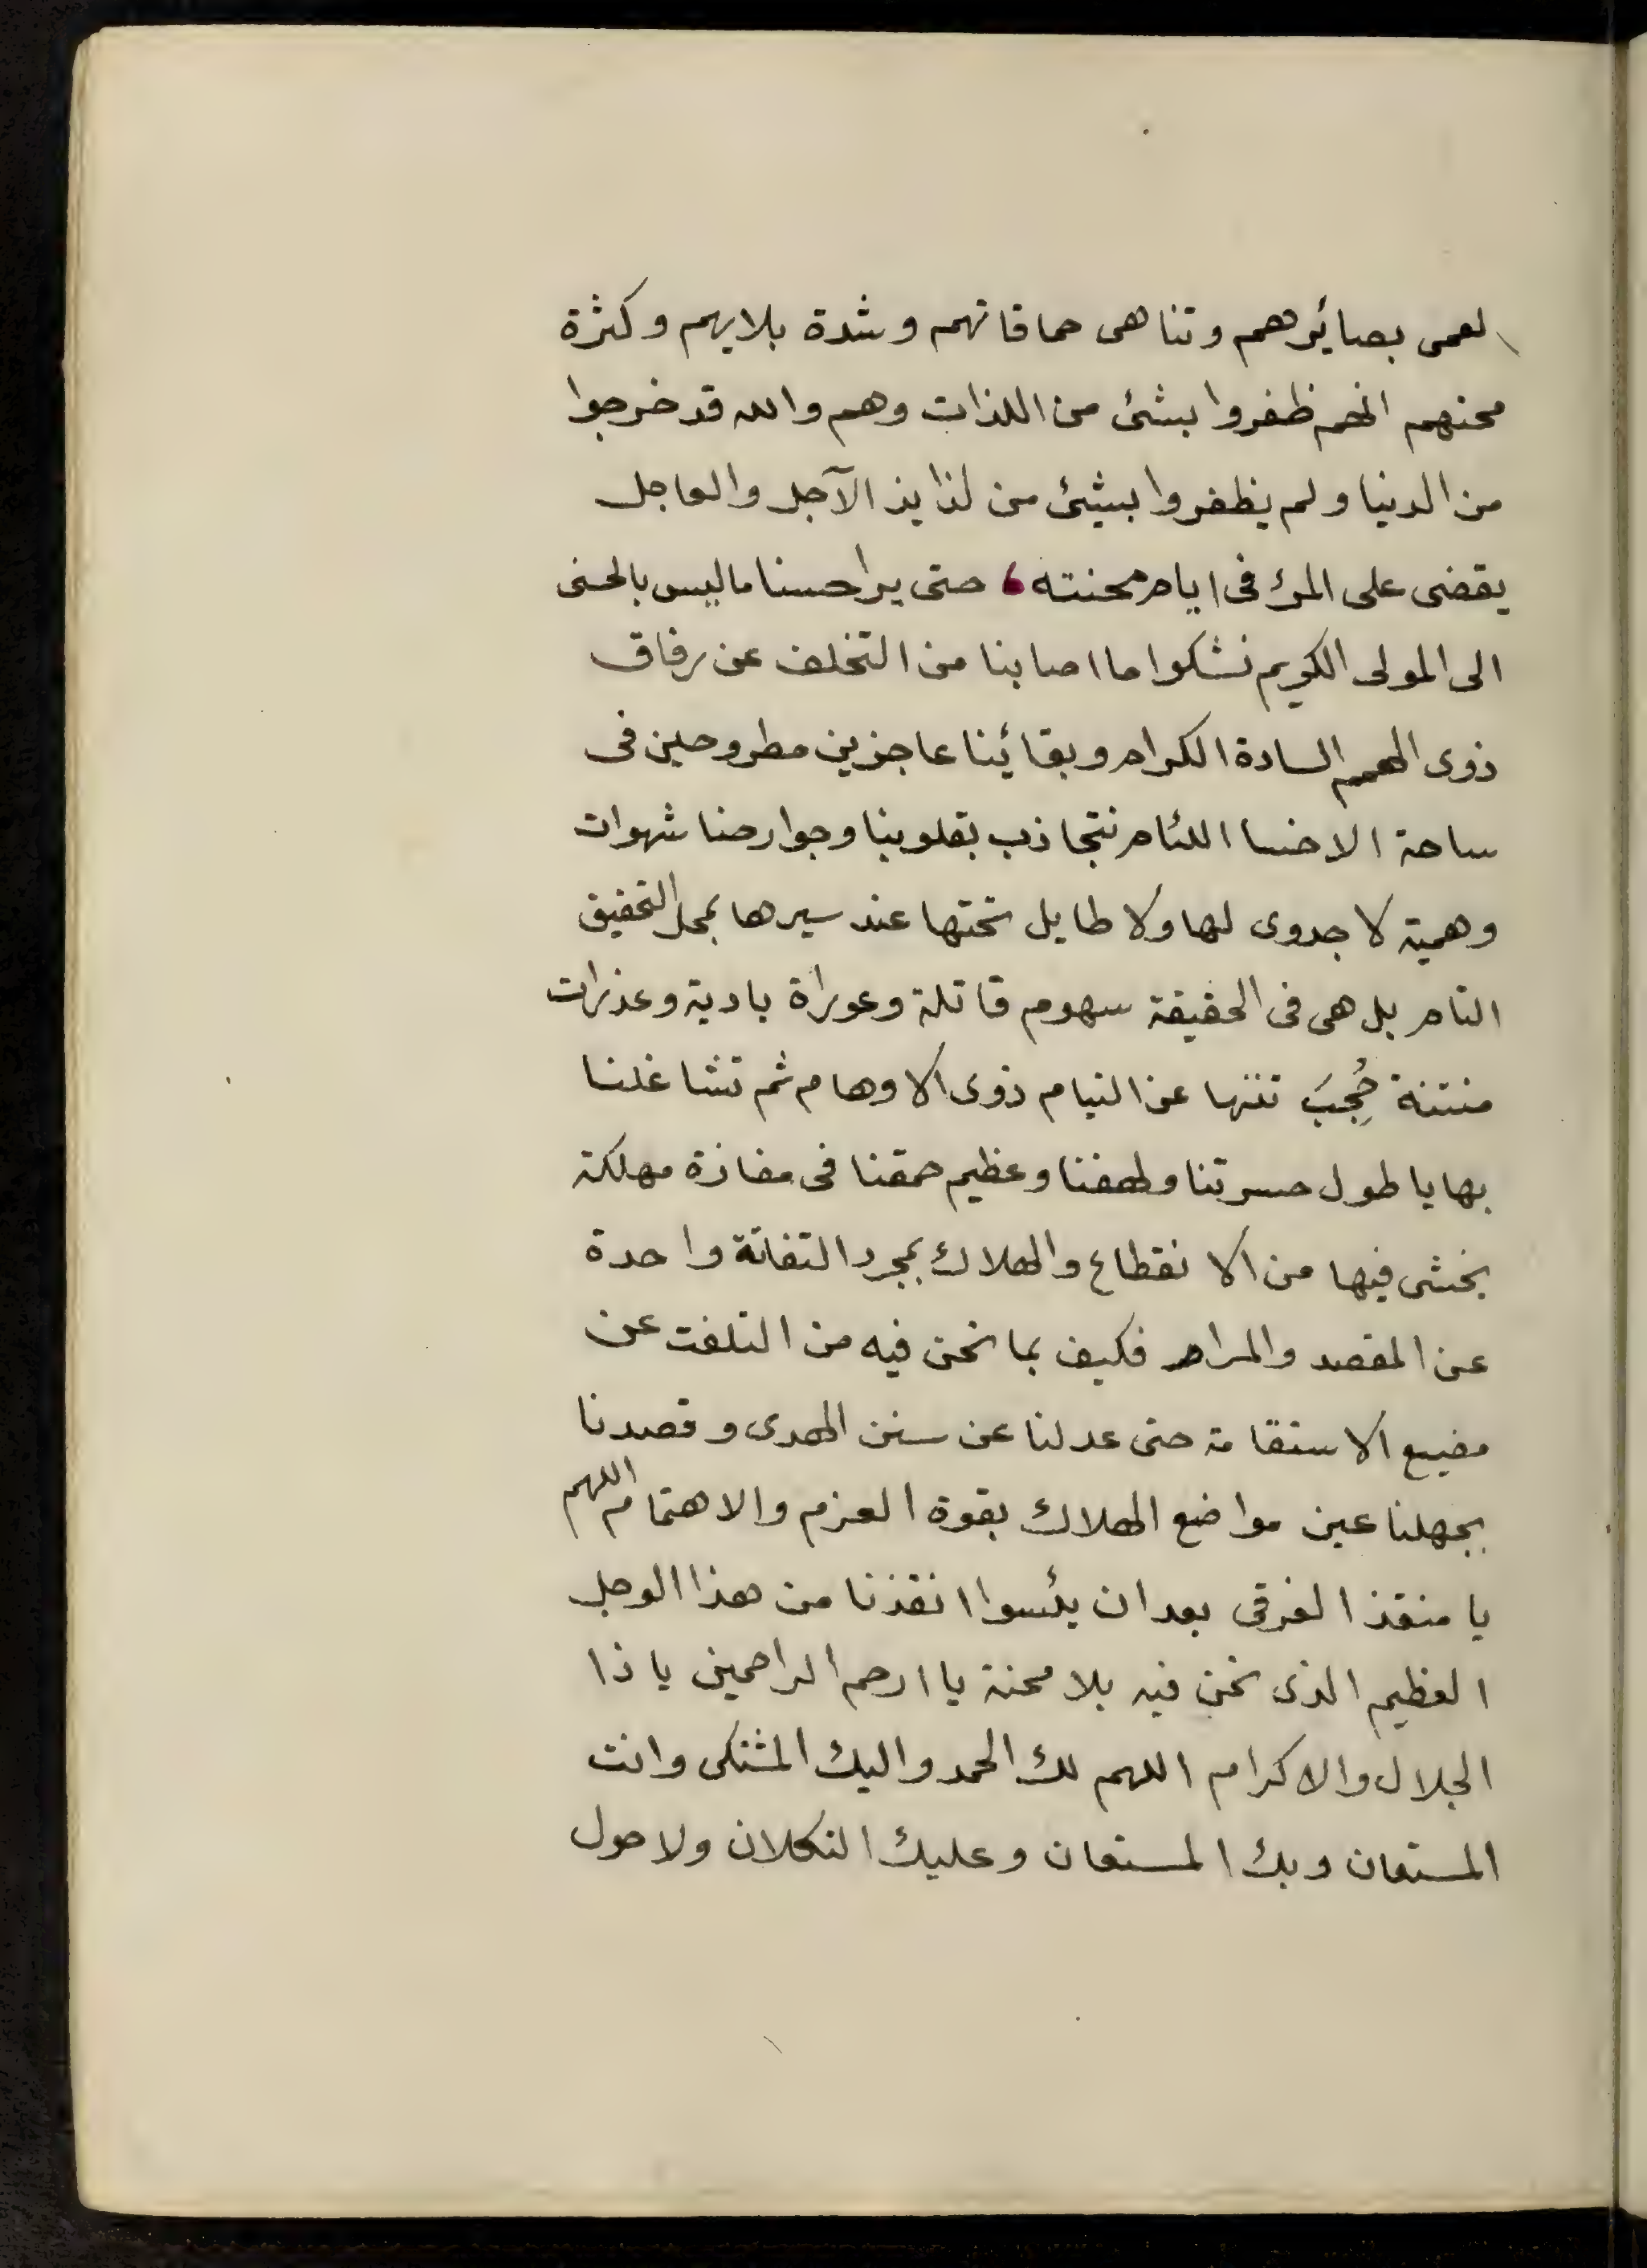 لعمى بصائرهم وتناهى حماقاتهم وشدة بلايهم وكثرة
محنهم انهم ظفروا بشئ من اللذات وهم والله قد خرجوا
من الدنيا ولم يظفروا بشئ من لذايذ الآجل والعاجل
يقضى على المرئ فى ايام محنته ، حتى يرا حسنا ماليس بالحسنى
الى المولى الكريم نشكوا ما اصابنا من التخلف عن رفاق
ذوى الهمم السادة الكرام وبقائينا عاجزين مطروحين فى
ساحة الاخسا اللئام نتجاذب بقلوبنا وجوارحنا شهوات
وهمية لا جدوى لها ولا طايل تحتها عند سيرها بمحل التحقيق
التام بل هى فى الحقيقة سهوم قاتلة وعوراة بادية وعذرات
منتنة حُجِبَ نتنها عن النيام ذوى الاوهام ثم تشاغلنا
بها يا طول حسرتنا ولهفنا وعظيم حمقنا فى مفازة مهلكة
يخشى فيها من الانقطاع والهلاك بمجرد التفاتة واحدة
عن المقصد والمرام فكيف بما نحن فيه من التلفت عن
مضيع الاستقامة حتى عدلنا عن سنن الهدى وقصدنا
بجهلنا عين مواضع الهلاك بقوة العزم والاهتمام اللهم
يا منقذ الغرقى بعد ان يئسوا انقذنا من هذا الوحل
العظيم الذى نحن فيه بلا محنة يا ارحم الراحمين يا ذا
الجلال والاكرام اللهم لك الحمد واليك المشتكى وانت
المستعان وبك المستعان وعليك التكلان ولا حول